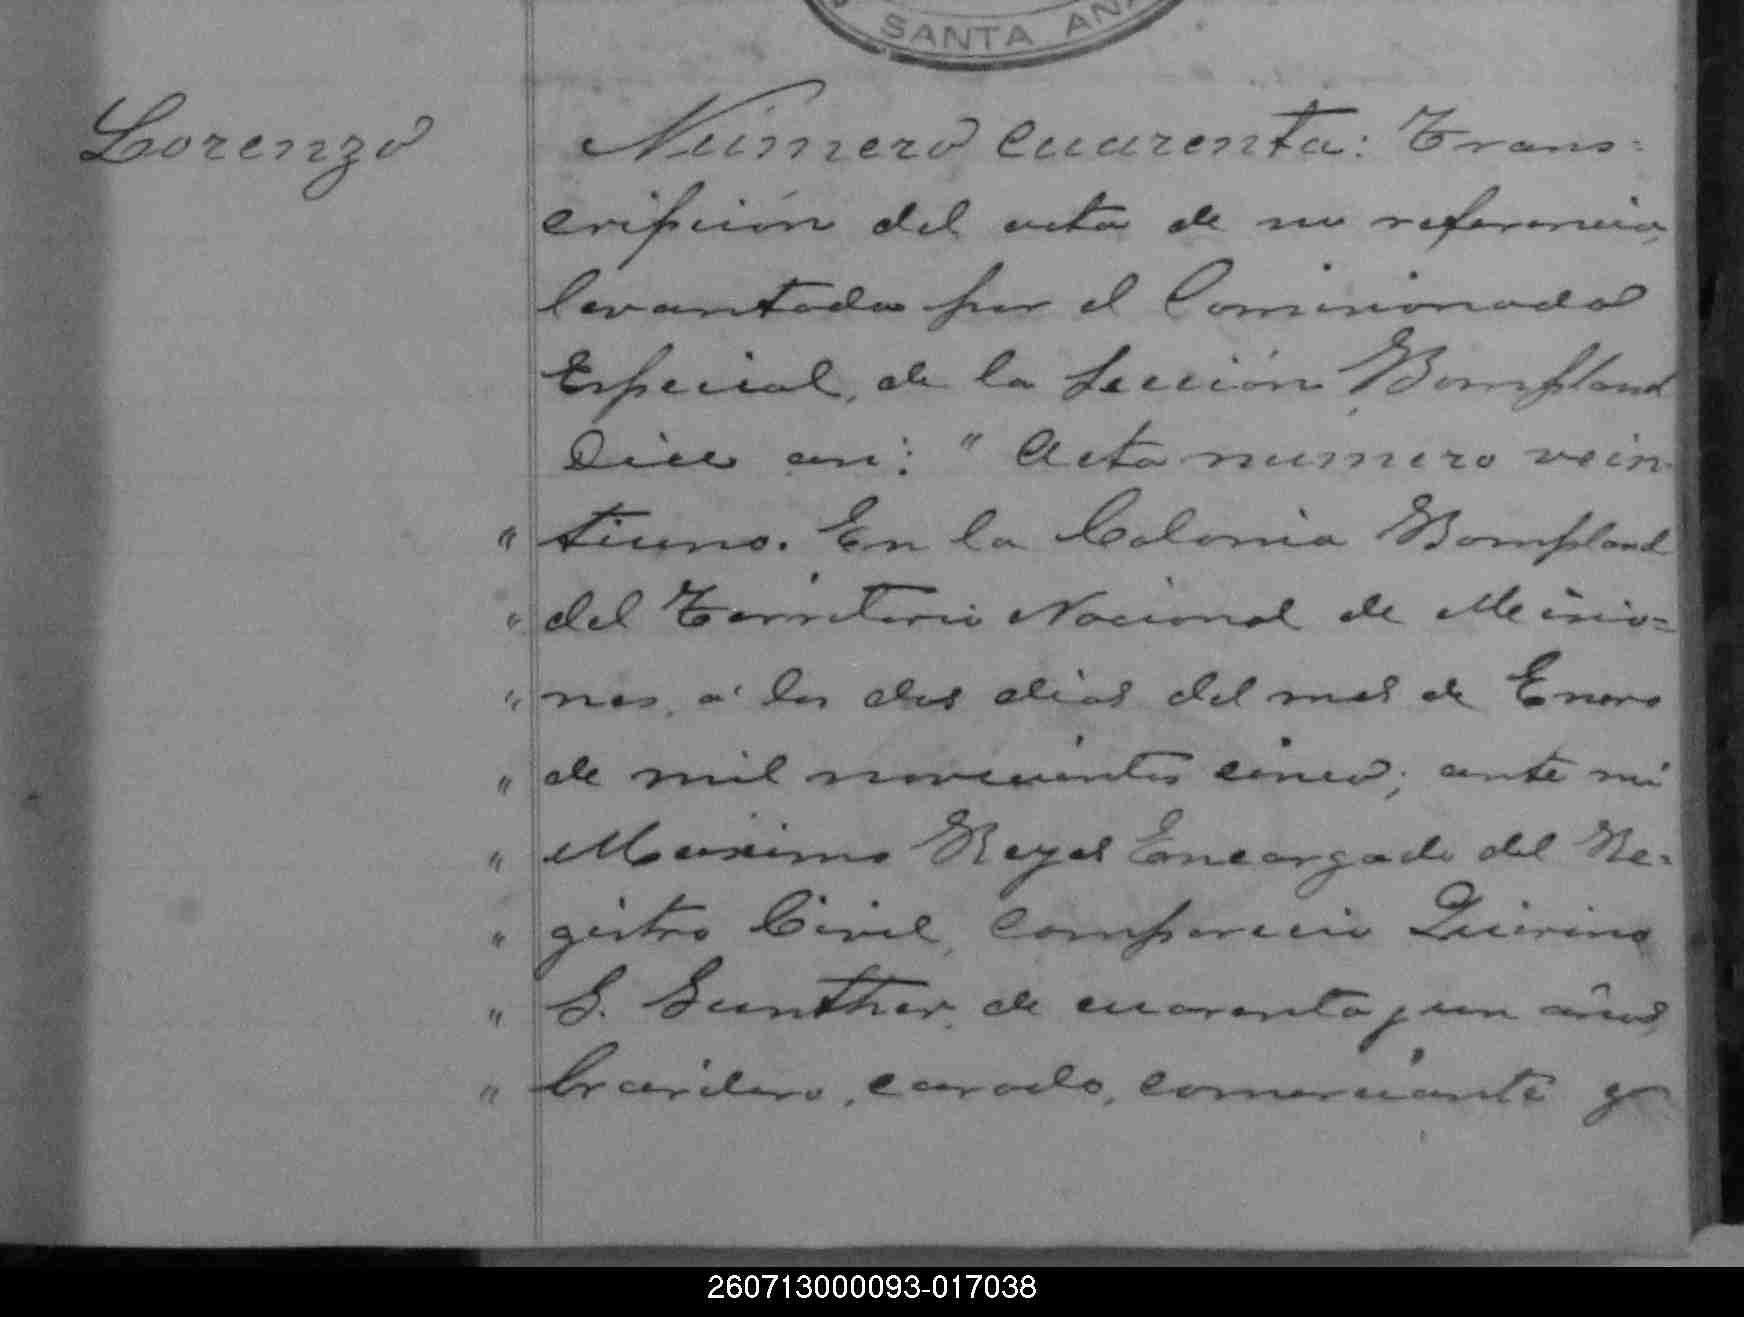 SANTA ANA
Lorenzo
Número cuarenta: Trans=
cripción del acta de su referencia,
levantada por el Comisionado
Especial, de la Sección Bompland
Dice asi: " Acta número vein
" tiuno. En la Colonia Bompland
" del Territorio Nacional de Misio=
" nes, á los dos dias del mes de Enero
" de mil novecientos cinco; ante mi
" Maximo Reyes Encargado del Re=
" gistro Civil, compareció Quirino
" G. Gunther, de cuarenta y un años,
" brasilero, casado, comerciante y
260713000093-017038